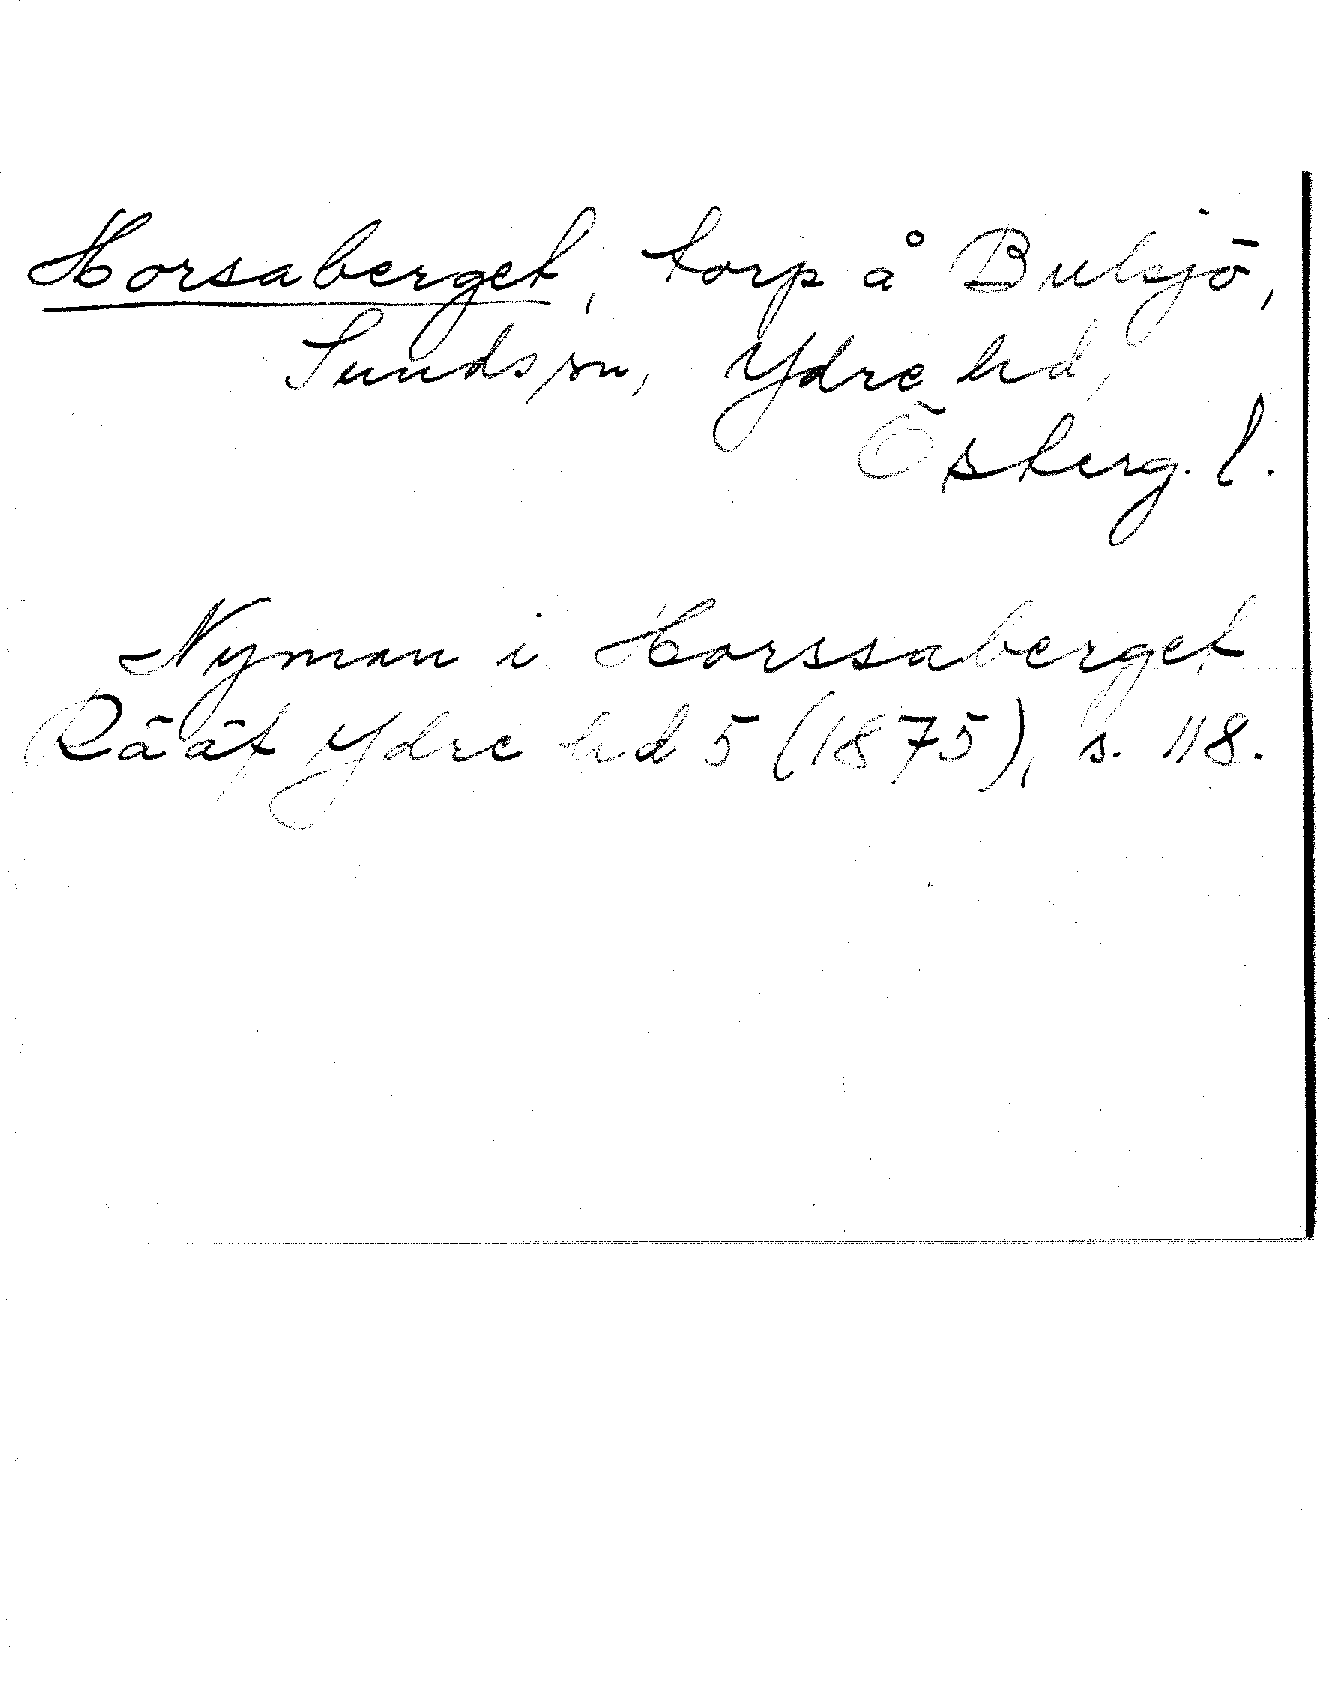 Horsaberget, torp å Bulsjö,
Sunds sn, Ydre hd,
Österg. l.
Nyman i Horssaberget
Rääf Ydre hd 5 (1875), s. 118.